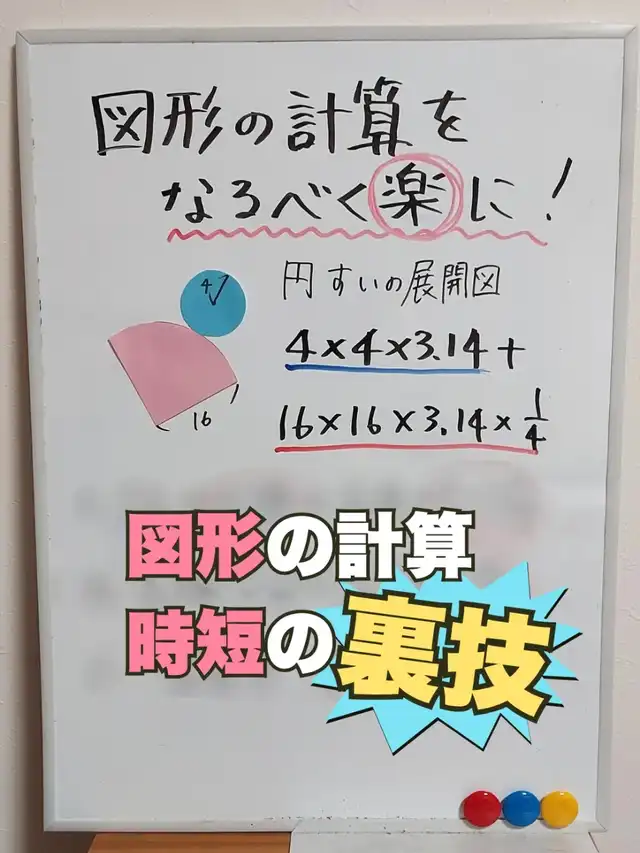 図形の計算を
なるべく楽に!
円すいの展開図
4
4×4×3.14+
16
16×16×3.14×1/4
図形の計算
時短の裏技